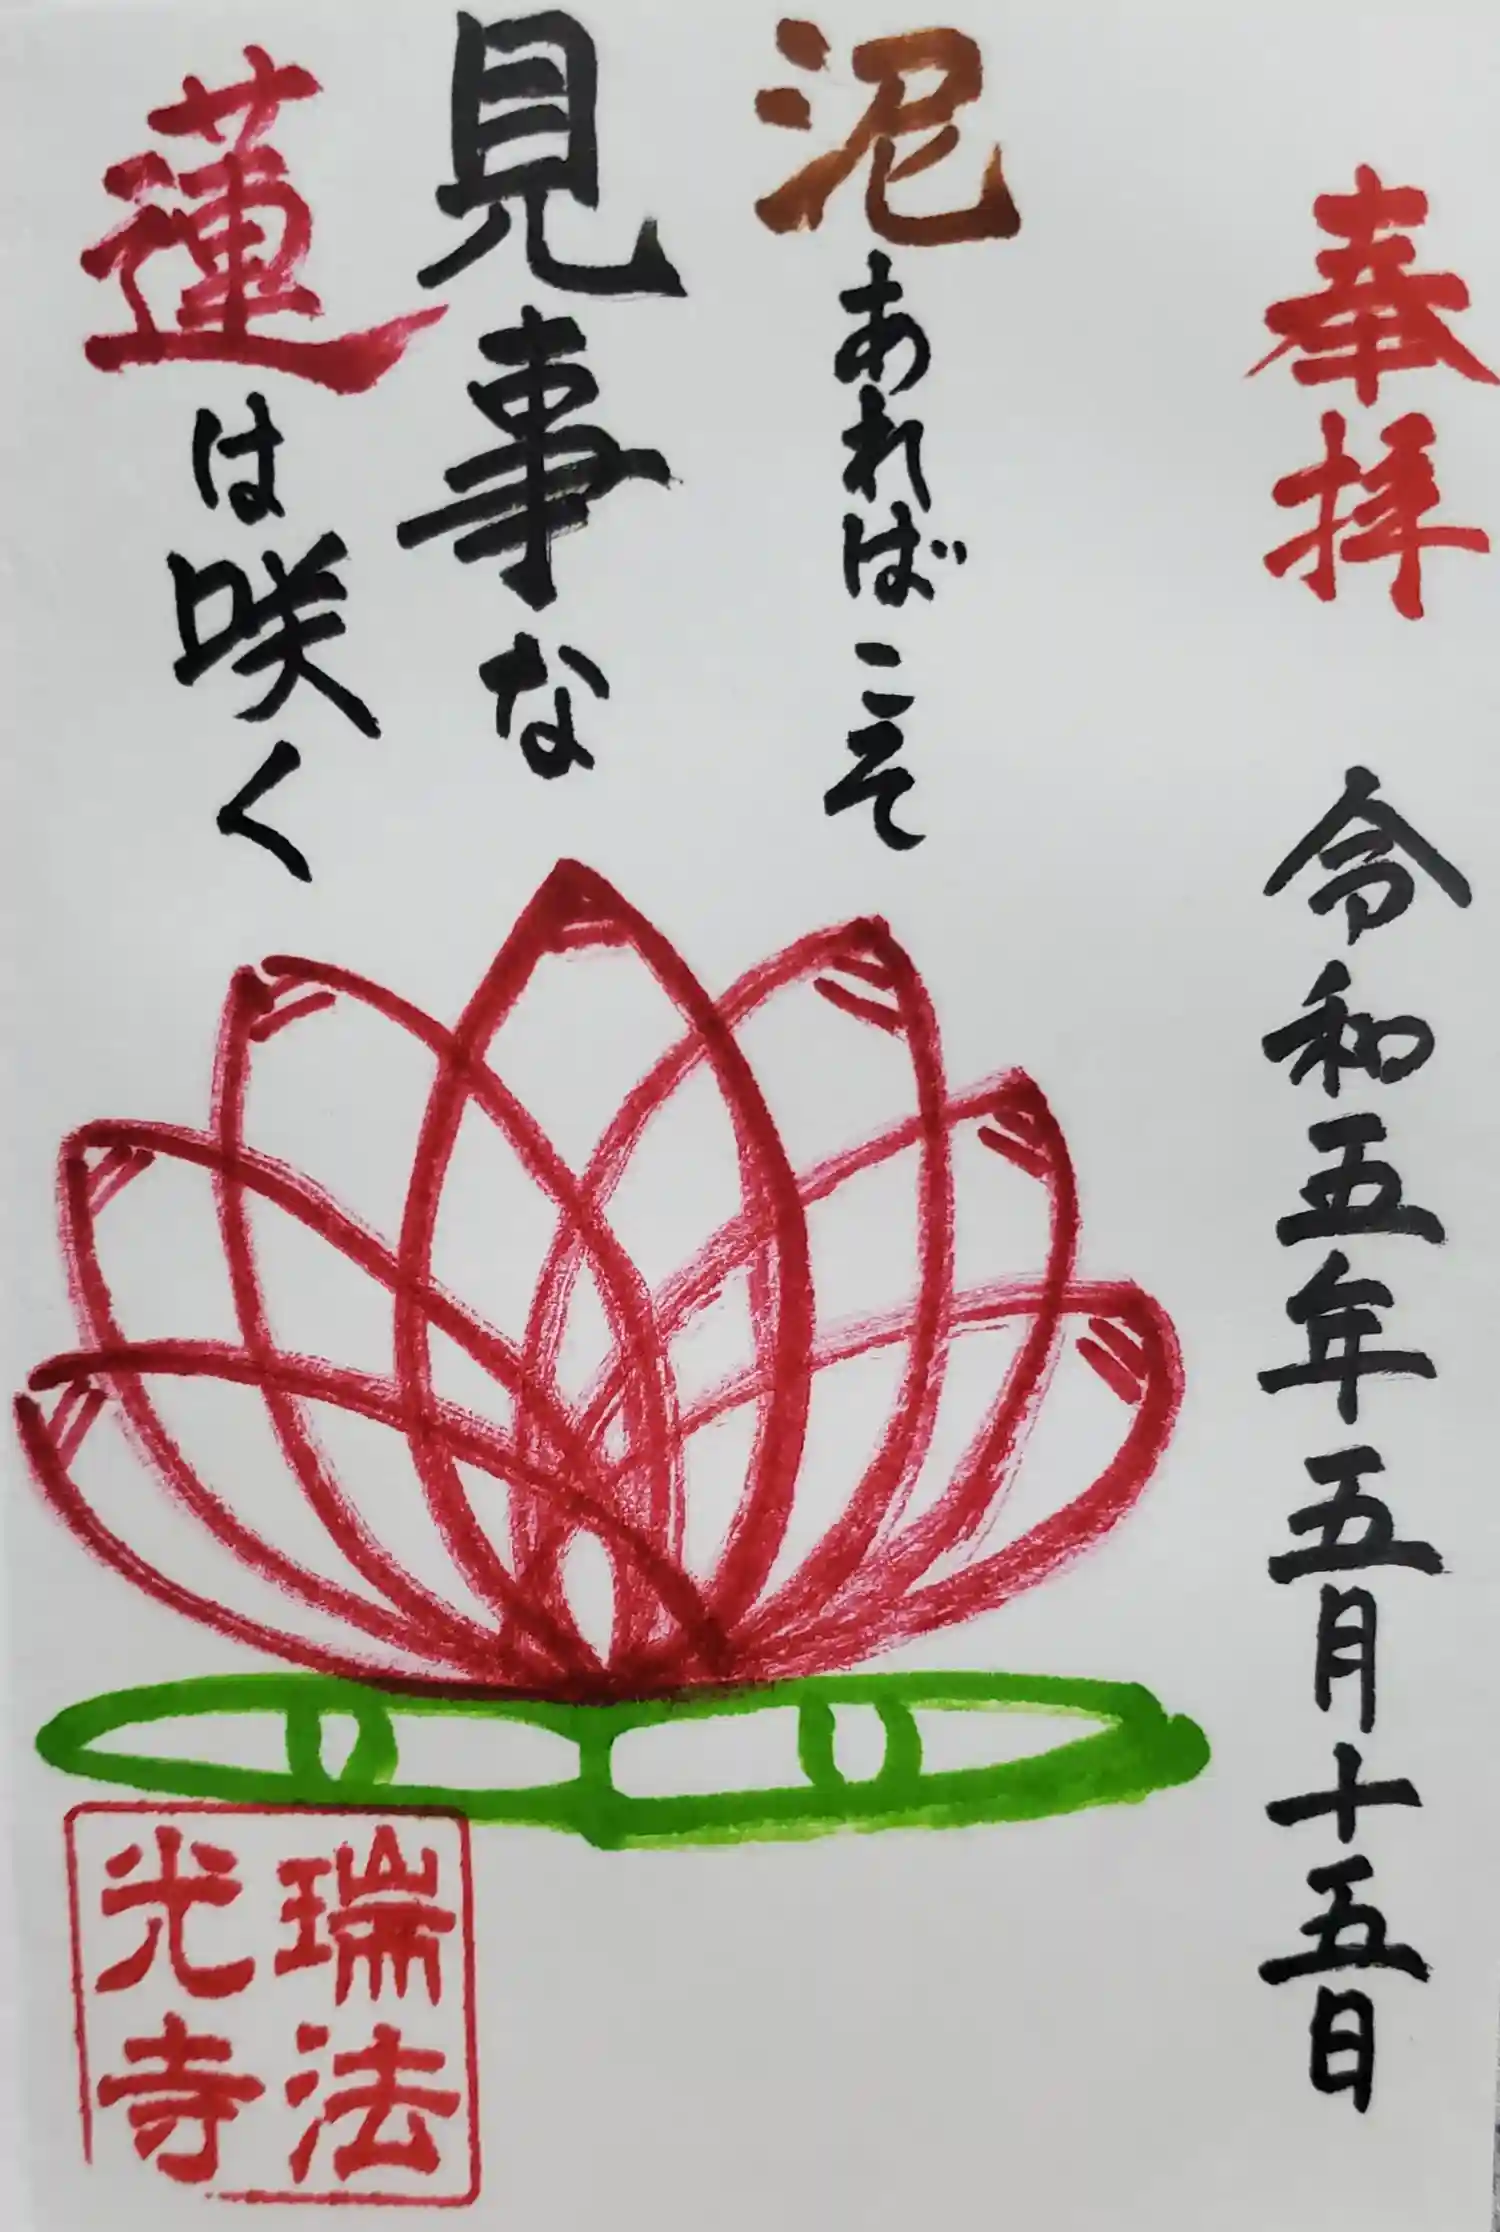 奉拝
令和五年五月十五日
泥あればこそ
見事な
蓮は咲く
瑞法
光寺